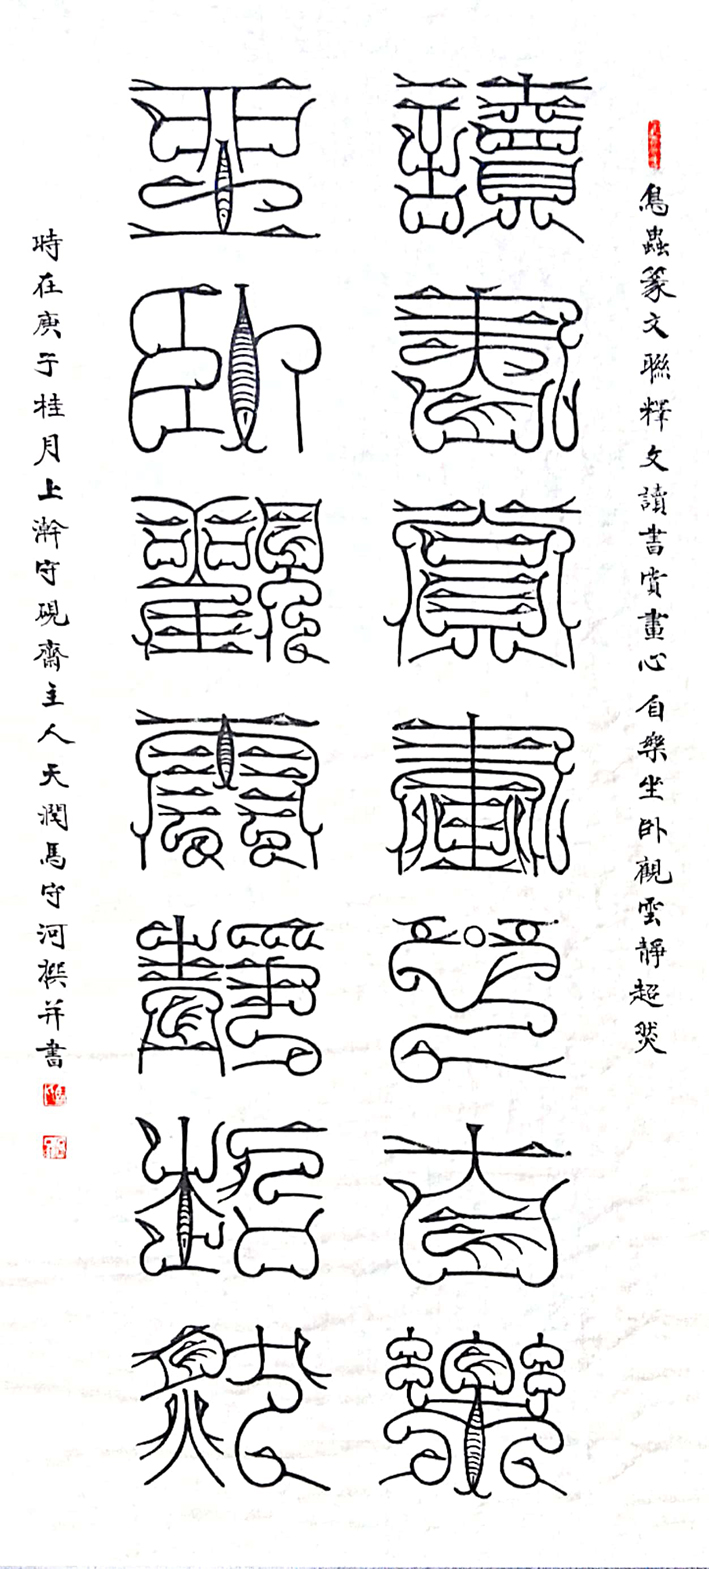 鳥蟲篆文聯釋文讀書賞畫心自樂坐卧觀雲靜超然
讀書賞畫心自樂
坐卧觀雲靜超然
時在庚子桂月上澣守硯齋主人天潤馬守河撰并書